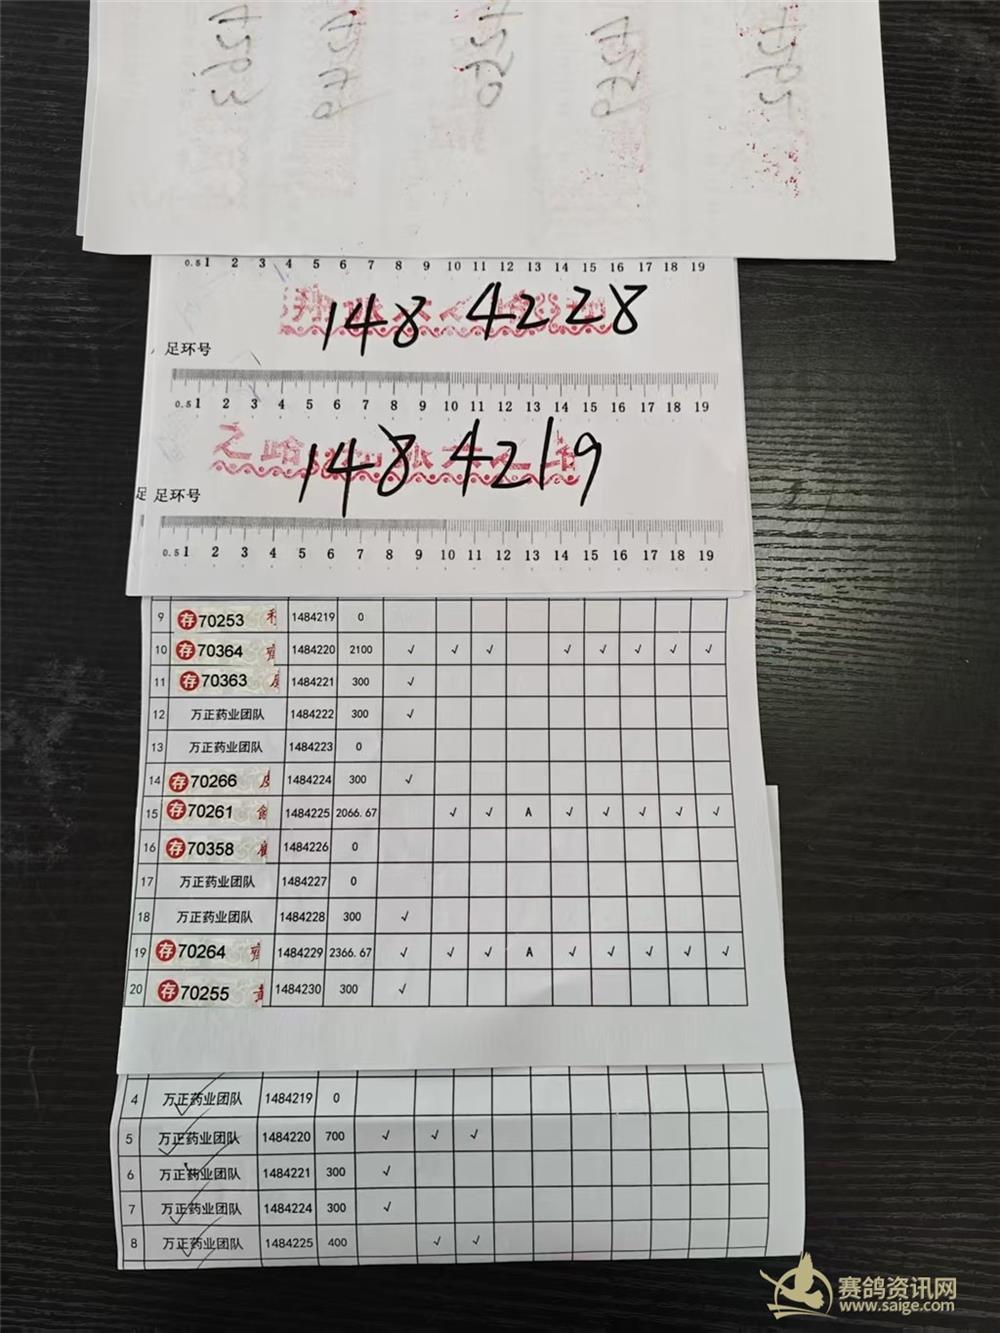 0.5 1 2 3 4 5 6 7 8 9 10 11 12 13 14 15 16 17 18 19
148 4228
足环号
0.5 1 2 3 4 5 6 7 8 9 10 11 12 13 14 15 16 17 18 19
之
148 4219
足 足环号
0.5 1 2 3 4 5 6 7 8 9 10 11 12 13 14 15 16 17 18 19
9 存 70253 1484219 0
10 存 70364 1484220 2100 √ √ √ √ √ √ √ √
11 存 70363 1484221 300 √
12 万正药业团队 1484222 300 √
13 万正药业团队 1484223 0
14 存 70266 1484224 300 √
15 存 70261 1484225 2066.67 √ √ A √ √ √ √ √
16 存 70358 1484226 0
17 万正药业团队 1484227 0
18 万正药业团队 1484228 300 √
19 存 70264 1484229 2366.67 √ √ √ A √ √ √ √ √
20 存 70255 1484230 300 √
4 万正药业团队 1484219 0
5 万正药业团队 1484220 700 √ √ √
6 万正药业团队 1484221 300 √
7 万正药业团队 1484224 300 √
8 万正药业团队 1484225 400 √ √
赛鸽资讯网
www.saige.com